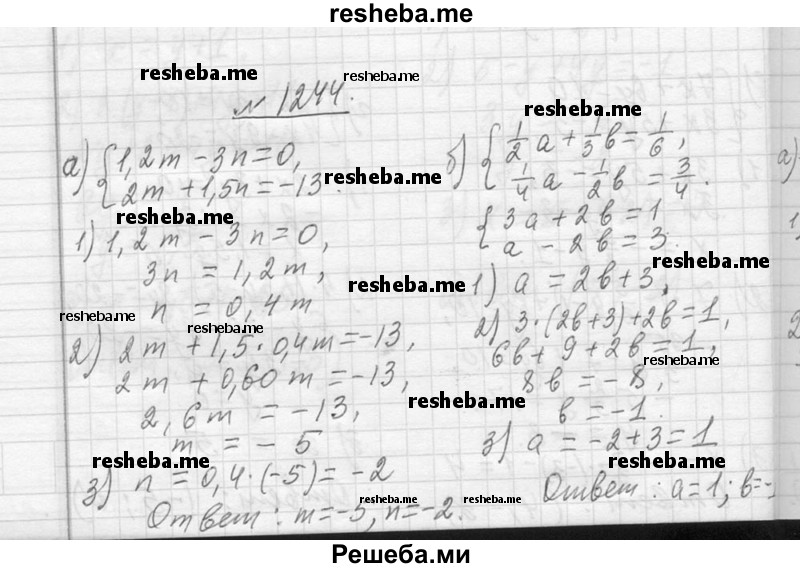 resheba.me
resheba.me
resheba.me
№ 1244.
resheba.me
а) { 1,2m - 3n = 0,
2m + 1,5n = -13.
resheba.me
1) 1,2m - 3n = 0,
resheba.me
3n = 1,2m,
n = 0,4m
resheba.me
resheba.me
2) 2m + 1,5·0,4m = -13,
2m + 0,60m = -13,
2,6m = -13,
m = -5
resheba.me
3) n = 0,4·(-5) = -2
Ответ: m = -5, n = -2.
б) { 1/2 a + 1/3 b = 1/6,
1/4 a - 1/2 b = 3/4.
{ 3a + 2b = 1
a - 2b = 3.
resheba.me
resheba.me
1) a = 2b + 3,
2) 3·(2b+3) + 2b = 1,
6b + 9 + 2b = 1,
resheba.me
8b = -8,
resheba.me
b = -1.
3) a = -2 + 3 = 1
resheba.me
resheba.me
resheba.me
Ответ: a = 1; b = -
а)
1)
2
Решеба.ми